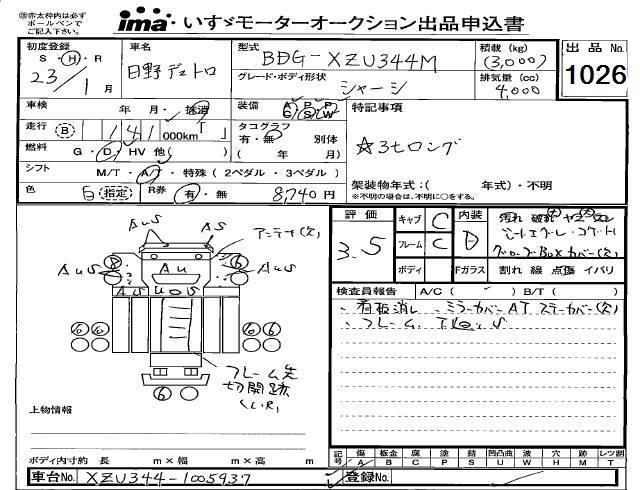 ※赤太枠内は必ず
ボールペンで
ご記入下さい。
ima・いすゞモーターオークション出品申込書
初度登録 車名 型式 積載 (kg) 出品No.
S・H・R 日野デュトロ BDG-XZU344M (3,000) 1026
23年 1月 グレード・ボディ形状 シャーシ 排気量 (cc) 4,000
車検 年 月・抹消 装備 A P P C S W 特記事項
走行 B 141 000km「 」 タコグラフ 有・無 別体 ( 年 月)
☆3tロング
燃料 G・D・HV 他( )
シフト M/T・A/T・特殊(2ペダル・3ペダル) 架装物年式:( 年式)・不明
※不明の場合は、不明に○をする。
色 白 指定 R券 有・無 8,740円
評価 キャブ C 内装 汚れ 破れ ヤニ ヌレ
3.5 フレーム C D シートエグレ・コゲ
ボディ Fガラス 割れ 線 点傷 イバリ
グローブBoxカバー(欠)
検査員報告 A/C( ) B/T( )
・看板消し ・ミラーカバーAT ステーカバー(欠)
・フレーム、下回りS
AuS AS アンテナ(欠)
AuS Au AuS
AuS UoS
6 6 6 6
6
フレーム先
切開跡
(L,R)
上物情報
ボディ内寸約 長 m×幅 m×高 m
記号 傷 A 板金 B 腐 C 塗 P 錆 S 凹凸曲 U 波 W 穴 H 跡 M レツ割 T
車台No. XZU344-1005937 登録No.